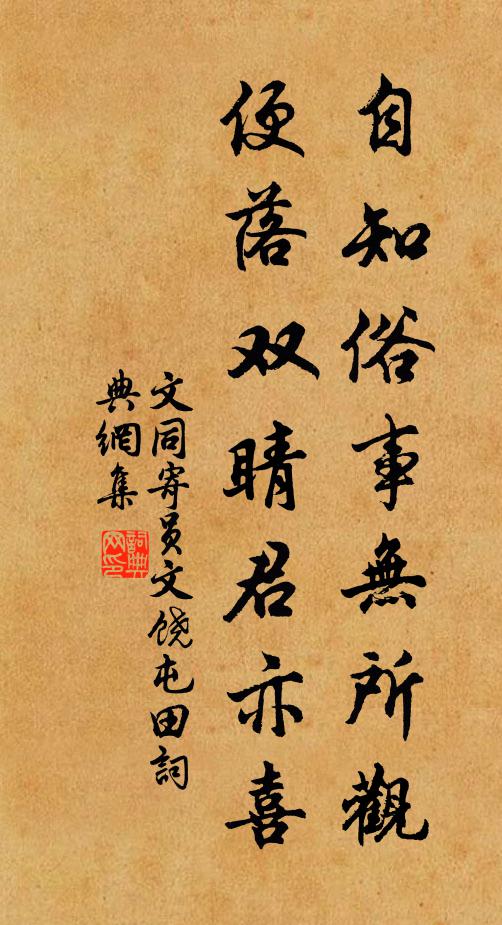 自知俗事無所觀
便落双睛君亦喜
文同寄员文饶屯田詞
典網集
詞典网印